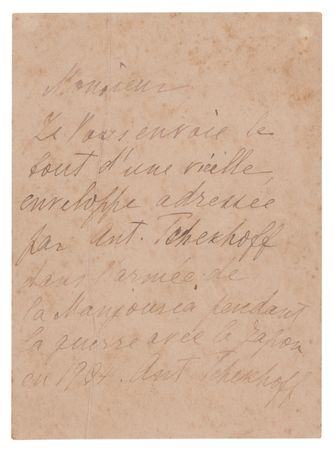 Monsieur
Je Vous envoie le
bout d'une vieille
enveloppe adressée
par Ant. Tchekhoff
dans l'armée de
la Manjouria pendant
la guerre avec le Japon
en 1904. Ant Tchekhoff